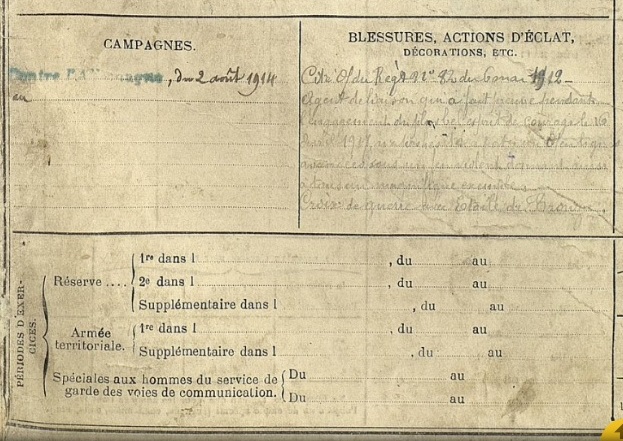 CAMPAGNES.
Contre l'Allemagne, du 2 août 1914
au
BLESSURES, ACTIONS D'ÉCLAT,
DÉCORATIONS, ETC.
Cité O/ du Régt N° 82 du 6 mai
Agent de liaison qui a fait preuve pendant
engagement du plus bel esprit de courage le
avancées sous un feu violent donnant ainsi
à tous un magnifique exemple
Croix de guerre avec Étoile de Bronze.
PÉRIODES D'EXER-
CICES.
Réserve ....
1re dans l , du au
2e dans l , du au
Supplémentaire dans l , du au
Armée
territoriale.
1re dans l , du au
Supplémentaire dans l , du au
Spéciales aux hommes du service de
garde des voies de communication.
Du au
Du au